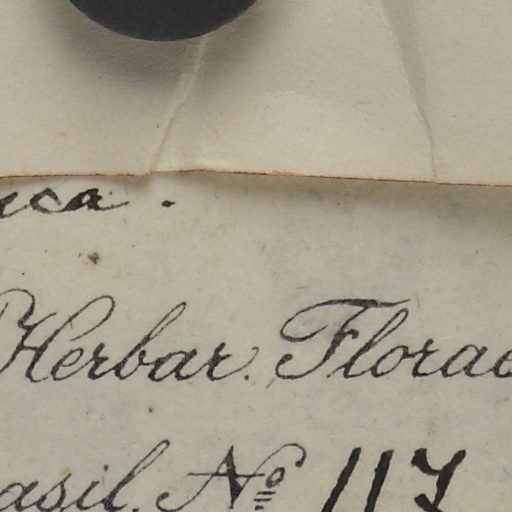 Herbar. Florae
asil. No 117